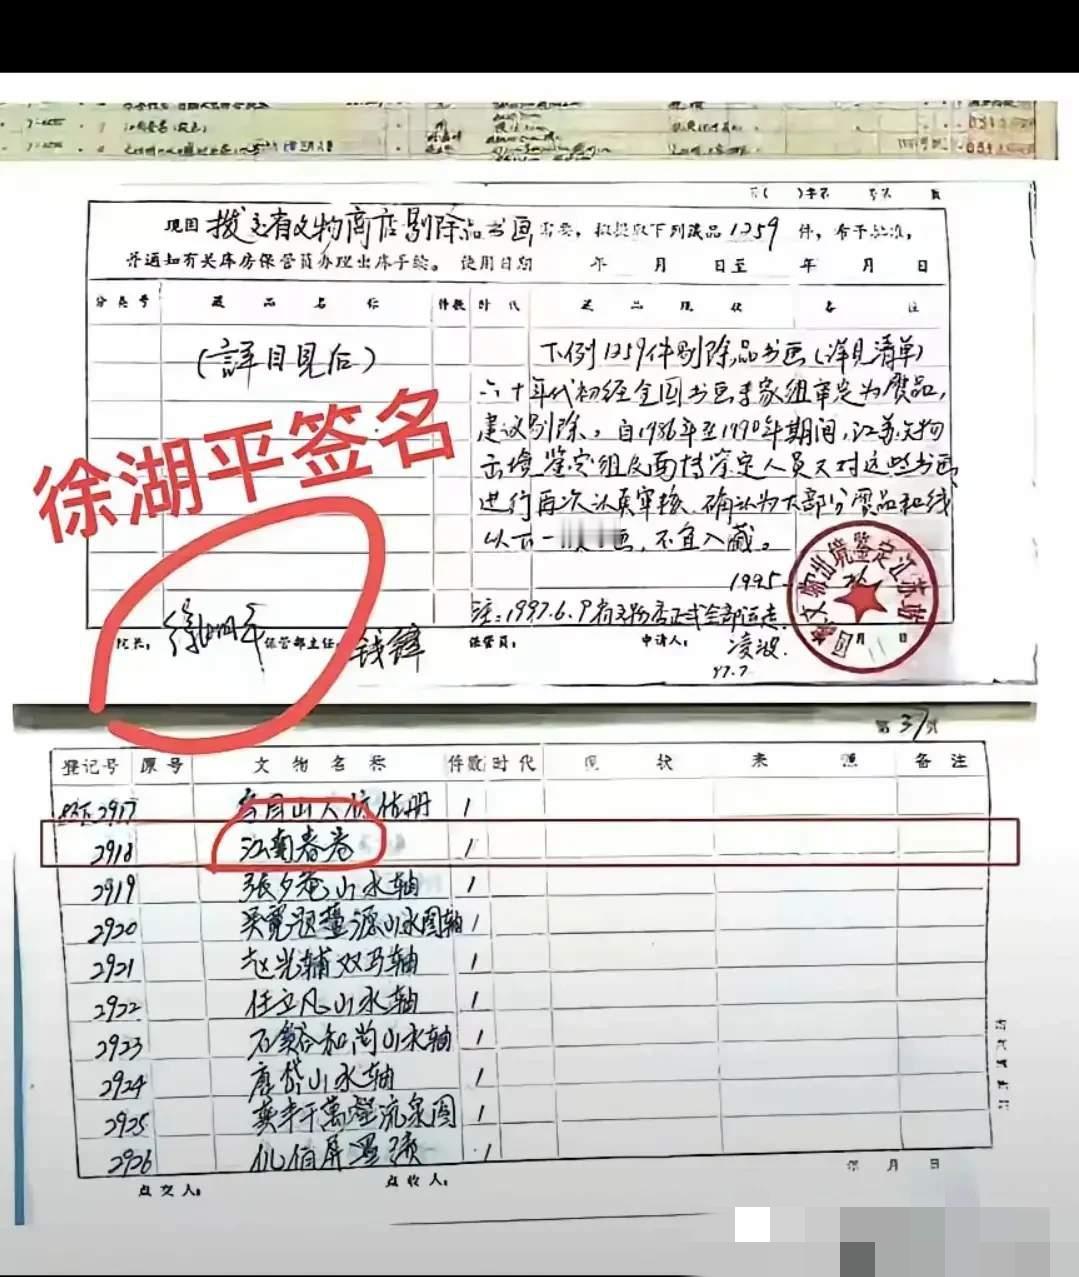 现因 拨交有文物商店剔除品书画 需要，拟提取下列藏品 1259 件，希予批准，
并通知有关库房保管员办理出库手续。 使用日期 年 月 日至 年 月 日
分类号 藏品名称 件数 时代 藏品现状 备注
(詳目見后)
下例1259件剔除品书画(详见清单)
六十年代初经全国书画专家组审定为赝品,
建议剔除。自1986年至1990年期间,江苏文物
出境鉴定组及两持鉴定人员又对这些书画
进行再次认真审核,确认为大部分赝品和线
以下一 画,不宜入藏。
徐湖平签名
1995
文物出境鉴定江苏站
月 日
注:1997.6.9 有文物店正式全部运走.
院长: 徐湖平 保管部主任: 钱锋 保管员: 申请人: 凌波.
97.7.
第 37 页
登记号 原号 文物名称 件数 时代 现状 来源 备注
2917 1
2918 江南春卷 1
2919 張夕菴山水轴 1
2920 吴寬题董源山水图轴 1
2921 赵光辅双马轴 1
2922 任立凡山水轴 1
2923 石谿和尚山水轴 1
2924 唐岱山水轴 1
2925 流泉图 1
2926 1
年 月 日
点交人: 点收人: